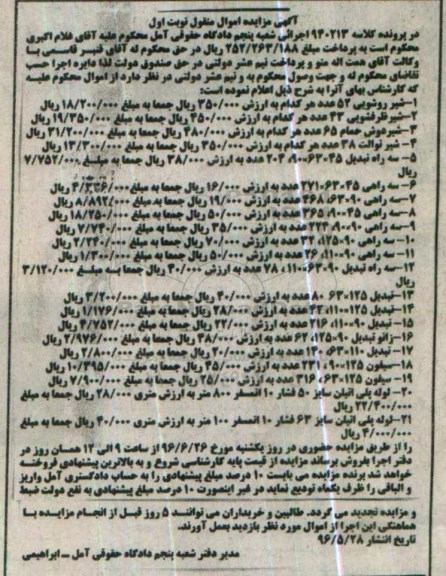 آگهی مزایده اموال منقول نوبت اول
در پرونده کلاسه ۹۴۰۲۱۳ اجرائی شعبه پنجم دادگاه حقوقی آمل محکوم علیه آقای غلام اکبری
محکوم است به پرداخت مبلغ ۲۵۲/۲۶۳/۱۸۸ ریال در حق محکوم له آقای قنبر قاسمی با
وکالت آقای همت اله منو و پرداخت نیم عشر دولتی در حق صندوق دولت لذا دایره اجرا حسب
تقاضای محکوم له و جهت وصول محکوم به و نیم عشر دولتی در نظر دارد از اموال محکوم علیه
که کارشناس بهای آنرا به شرح ذیل اعلام نموده است:
۱-شیر روشویی ۵۲ عدد هر کدام به ارزش ۳۵۰/۰۰۰ ریال جمعا به مبلغ ۱۸/۲۰۰/۰۰۰ ریال
۲-شیر ظرفشویی ۴۳ عدد هر کدام به ارزش ۴۵۰/۰۰۰ ریال جمعا به مبلغ ۱۹/۳۵۰/۰۰۰ ریال
۳-شیر دوش حمام ۶۵ عدد هر کدام به ارزش ۴۸۰/۰۰۰ ریال جمعا به مبلغ ۳۱/۲۰۰/۰۰۰ ریال
۴- شیر توالت ۳۸ عدد هر کدام به ارزش ۳۵۰/۰۰۰ ریال جمعا به مبلغ ۱۳/۳۰۰/۰۰۰ ریال
۵- سه راه تبدیل ۴۵-۶۳-۹۰، ۲۰۴ عدد به ارزش ۳۸/۰۰۰ ریال جمعا به مبلغ ۷/۷۵۲/۰۰۰
ریال
۶- سه راهی ۴۵-۶۳، ۲۷۱ عدد به ارزش ۱۶/۰۰۰ ریال جمعا به مبلغ ۴/۳۳۶/۰۰۰ ریال
۷-سه راهی ۹۰-۶۳، ۴۶۸ عدد به ارزش ۱۹/۰۰۰ ریال جمعا به مبلغ ۸/۸۹۲/۰۰۰ ریال
۸-سه راهی ۴۵-۹۰، ۳۶۵ عدد به ارزش ۵۰/۰۰۰ ریال جمعا به مبلغ ۱۸/۲۵۰/۰۰۰ ریال
۹-سه راهی ۹۰-۹۰، عدد به ارزش ۳۵/۰۰۰ ریال جمعا به مبلغ ۷/۷۴۰/۰۰۰ ریال
۱۰- سه راهی ۹۰-۱۲۵، ۳۲ عدد به ارزش ۷۰/۰۰۰ ریال جمعا به مبلغ ۲/۲۴۰/۰۰۰ ریال
۱۱- سه راهی ۹۰-۱۱۰، ۲۶ عدد به ارزش ۵۰/۰۰۰ ریال جمعا به مبلغ ۱/۳۰۰/۰۰۰ ریال
۱۲- سه راه تبدیل ۹۰-۶۳-۱۱۰، ۷۸ عدد به ارزش ۴۰/۰۰۰ ریال جمعا به مبلغ ۳/۱۲۰/۰۰۰
ریال
۱۳-تبدیل ۱۲۵×۶۳ ۸۰ عدد به ارزش ۴۰/۰۰۰ ریال جمعا به مبلغ ۳/۲۰۰/۰۰۰ ریال
۱۴-تبدیل ۱۲۵-۱۱۰، ۴۲ عدد به ارزش ۲۸/۰۰۰ ریال جمعا به مبلغ ۱/۱۷۶/۰۰۰ ریال
۱۵- تبدیل ۹۰-۱۱۰، ۲۱۶ عدد به ارزش ۲۲/۰۰۰ ریال جمعا به مبلغ ۴/۷۵۲/۰۰۰ ریال
۱۶-زانو تبدیل ۹۰-۱۲۵، ۶۲ عدد به ارزش ۴۸/۰۰۰ ریال جمعا به مبلغ ۲/۹۷۶/۰۰۰ ریال
۱۷- تبدیل ۱۱۰-۶۳، ۱۴۰ عدد به ارزش ۲۰/۰۰۰ ریال جمعا به مبلغ ۲/۸۰۰/۰۰۰ ریال
۱۸-سیفون ۱۲۵-۹۰، ۲۳۱ عدد به ارزش ۴۵/۰۰۰ ریال جمعا به مبلغ ۱۰/۳۹۵/۰۰۰ ریال
۱۹- سیفون ۱۲۵-۶۳، ۳۱۶ عدد به ارزش ۲۵/۰۰۰ ریال جمعا به مبلغ ۷/۹۰۰/۰۰۰ ریال
۲۰- لوله پلی اتیلن سایز ۵۰ فشار ۱۰ اتمسفر ۸۰۰ متر به ارزش متری ۲۸/۰۰۰ ریال جمعا به مبلغ
۲۲/۴۰۰/۰۰۰ ریال
۲۱-لوله پلی اتیلن سایز ۶۳ فشار ۱۰ اتمسفر ۱۰۰ متر به ارزش متری ۴۰/۰۰۰ ریال جمعا به مبلغ
۴/۰۰۰/۰۰۰ ریال
را از طریق مزایده حضوری در روز یکشنبه مورخ ۹۶/۶/۲۶ از ساعت ۹ الی ۱۲ همان روز در
دفتر اجرا بفروش برساند مزایده از قیمت پایه کارشناسی شروع و به بالاترین پیشنهادی فروخته
خواهد شد برنده مزایده می بایست ۱۰ درصد مبلغ پیشنهادی را به حساب دادگستری آمل واریز
و الباقی را ظرف یکماه تودیع نماید در غیر اینصورت ۱۰ درصد مبلغ پیشنهادی به نفع دولت ضبط
و مزایده تجدید می گردد. طالبین و خریداران می توانند ۵ روز قبل از انجام مزایده با
هماهنگی این اجرا از اموال مورد نظر بازدید بعمل آورند.
تاریخ انتشار ۹۶/۵/۲۸
مدیر دفتر شعبه پنجم دادگاه حقوقی آمل - ابراهیمی